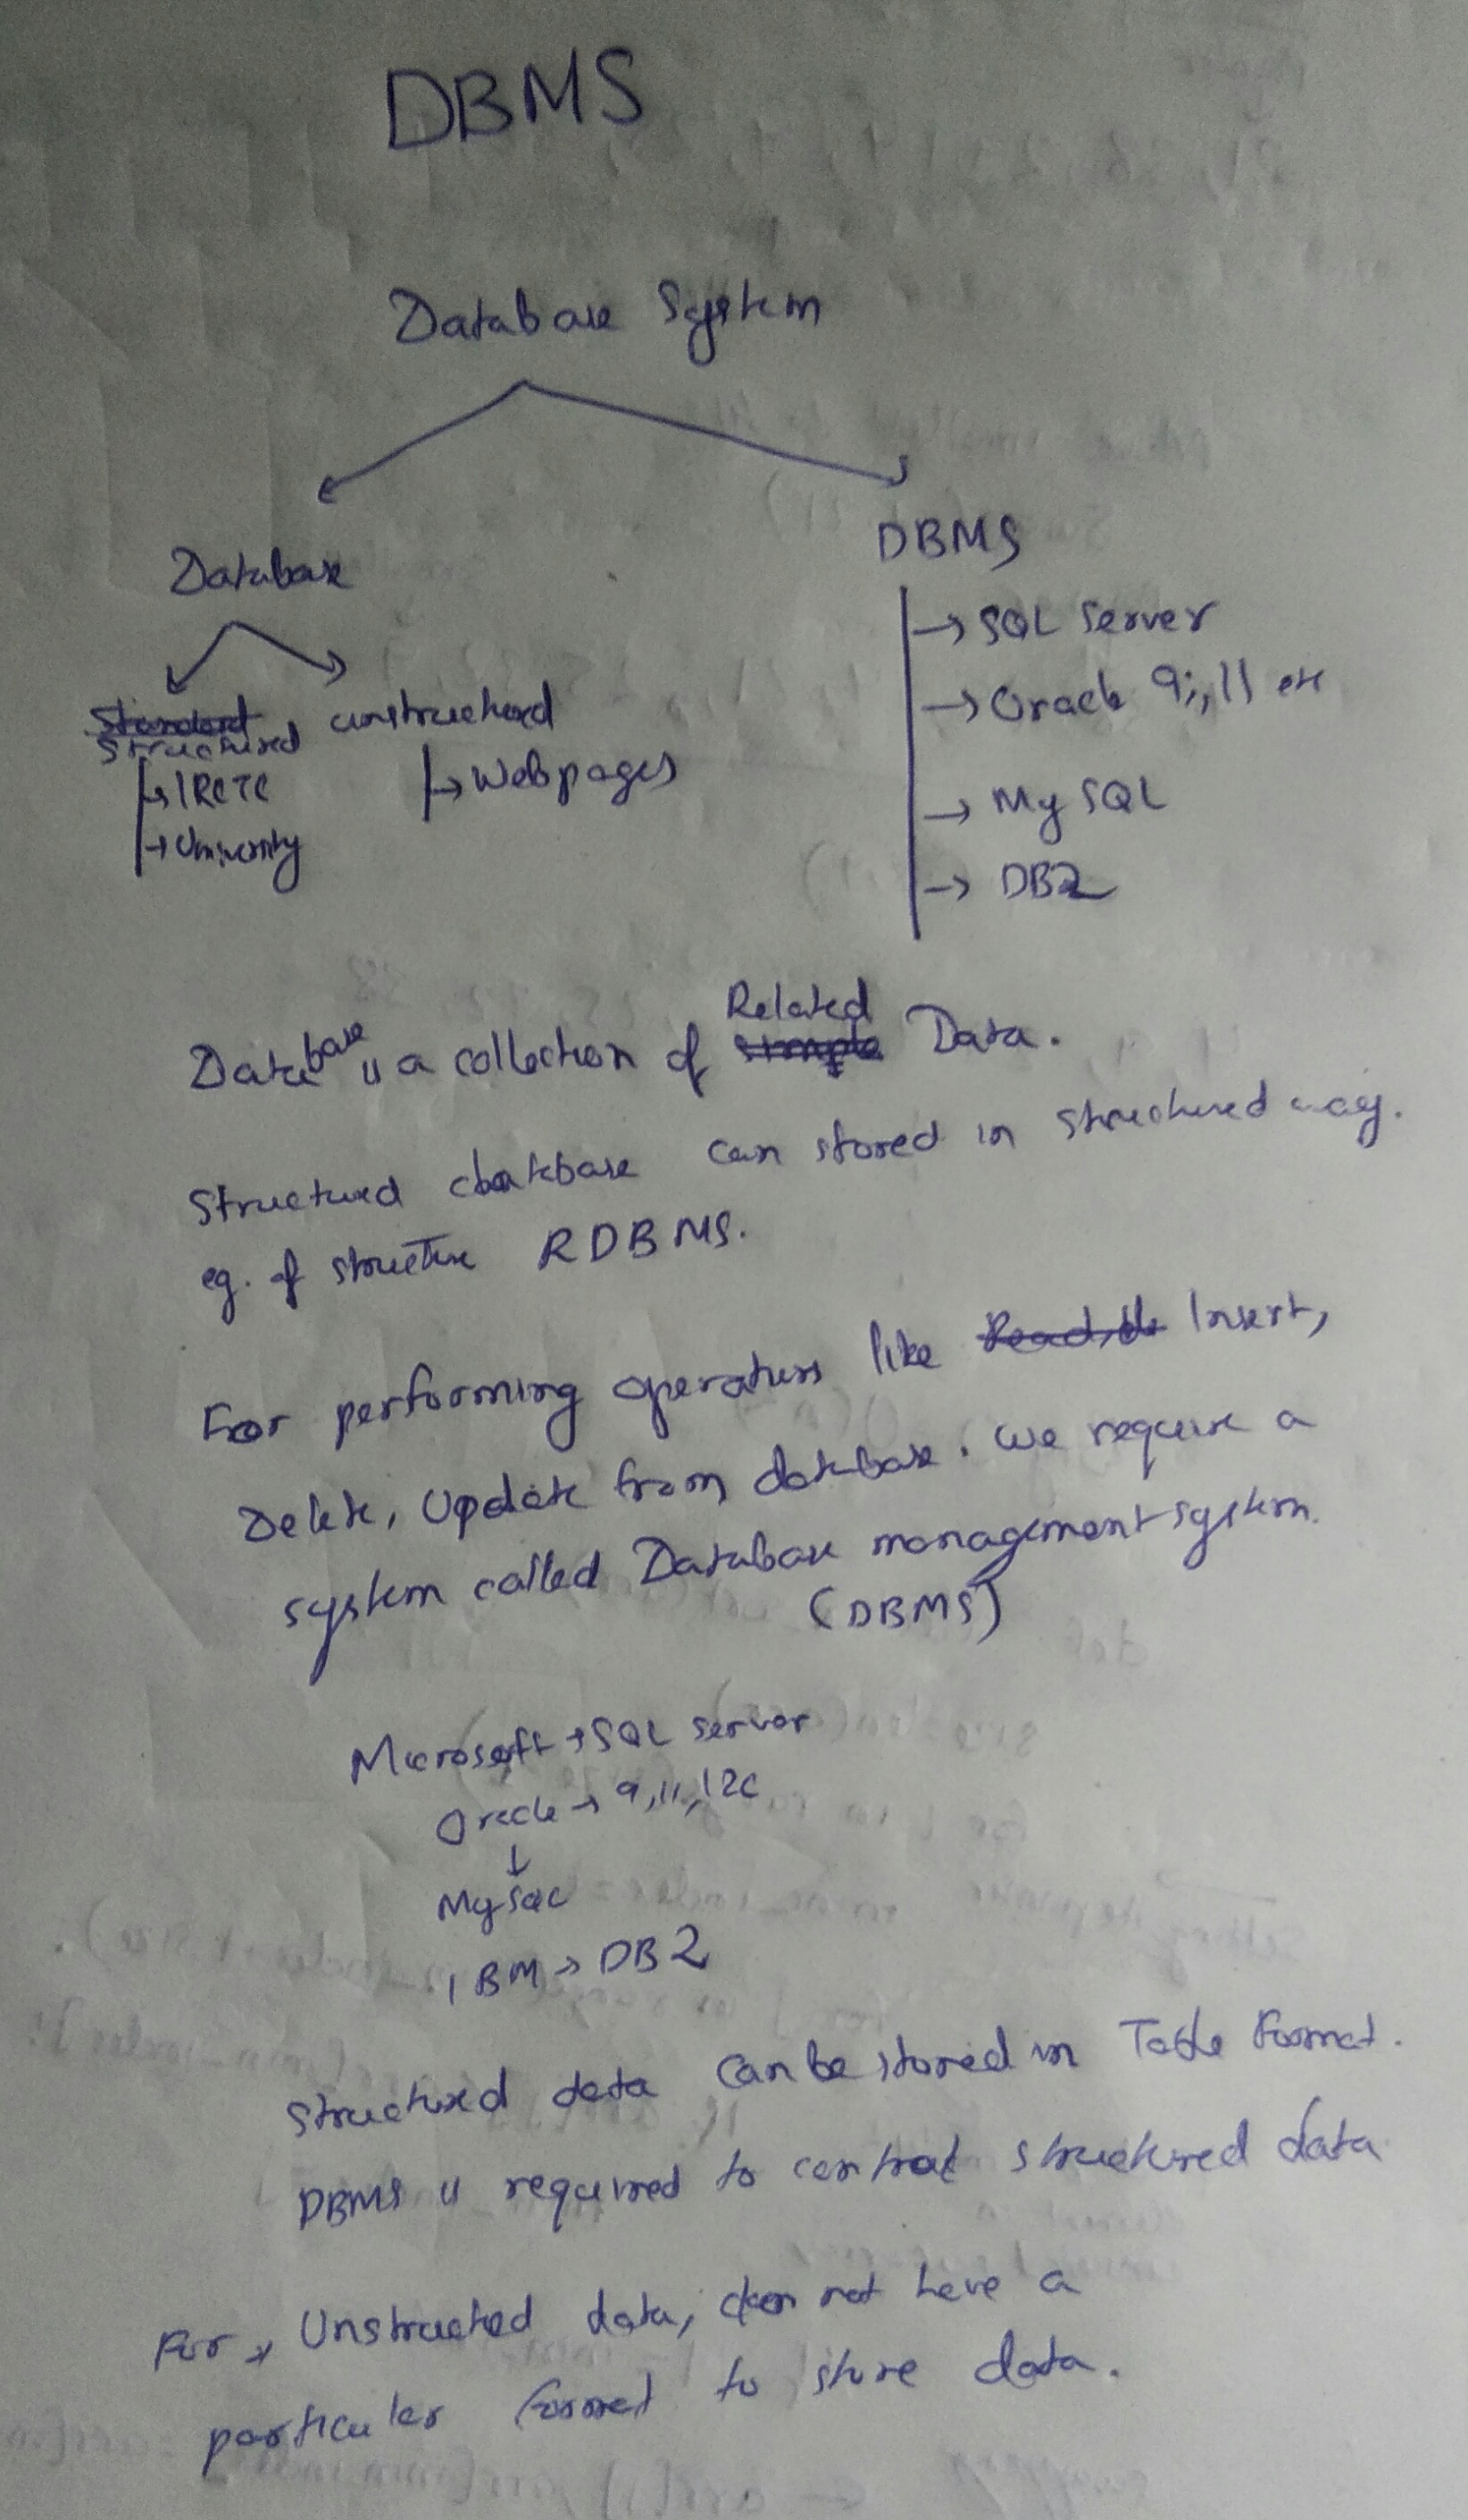 DBMS
Database System
Database
DBMS
→ SQL Server
→ Oracle 9i, 11 etc
→ My SQL
→ DB2
Standard
Structured
unstructured
→ IRCTC
→ University
→ Webpages
Related
Database is a collection of simple Data.
Structured database can stored in structured way.
eg. of structure RDBMS.
For performing operations like Read, Insert,
Delete, Update from database. We require a
system called Database management system.
(DBMS)
Microsoft → SQL server
Oracle → 9, 11, 12C
↓
MySQL
IBM → DB2
Structured data can be stored in Table Format.
DBMS is required to control structured data
For → Unstructed data, does not have a
particular format to store data.